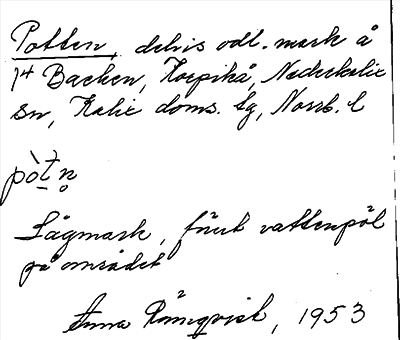 Potten, delvis odl. mark å
14 Backen, Korpikå, Nederkalix
sn, Kalix doms. lg, Norrb. l
pòt n̥
Lågmark, förut vattenpöl
på området
Anna Rönnqvist, 1953